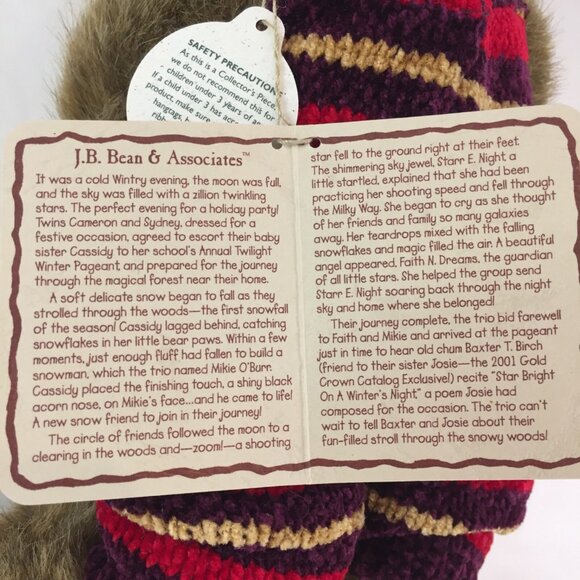 SAFETY PRECAUTION
As this is a Collector's Piece,
we do not recommend this for
children under 3 years of
If a child under 3 has
product, make sure
hangtags,
J.B. Bean & Associates™
It was a cold Wintry evening, the moon was full,
and the sky was filled with a zillion twinkling
stars. The perfect evening for a holiday party!
Twins Cameron and Sydney, dressed for a
festive occasion, agreed to escort their baby
sister Cassidy to her school's Annual Twilight
Winter Pageant and prepared for the journey
through the magical forest near their home.
A soft delicate snow began to fall as they
strolled through the woods—the first snowfall
of the season! Cassidy lagged behind, catching
snowflakes in her little bear paws. Within a few
moments, just enough fluff had fallen to build a
snowman, which the trio named Mikie O'Burr.
Cassidy placed the finishing touch, a shiny black
acorn nose, on Mikie's face...and he came to life!
A new snow friend to join in their journey!
The circle of friends followed the moon to a
clearing in the woods and—zoom!—a shooting
star fell to the ground right at their feet.
The shimmering sky jewel, Starr E. Night, a
little startled, explained that she had been
practicing her shooting speed and fell through
the Milky Way. She began to cry as she thought
of her friends and family so many galaxies
away. Her teardrops mixed with the falling
snowflakes and magic filled the air. A beautiful
angel appeared, Faith N. Dreams, the guardian
of all little stars. She helped the group send
Starr E. Night soaring back through the night
sky and home where she belonged!
Their journey complete, the trio bid farewell
to Faith and Mikie and arrived at the pageant
just in time to hear old chum Baxter T. Birch
(friend to their sister Josie—the 2001 Gold
Crown Catalog Exclusive!) recite "Star Bright
On A Winter's Night" a poem Josie had
composed for the occasion. The trio can't
wait to tell Baxter and Josie about their
fun-filled stroll through the snowy woods!